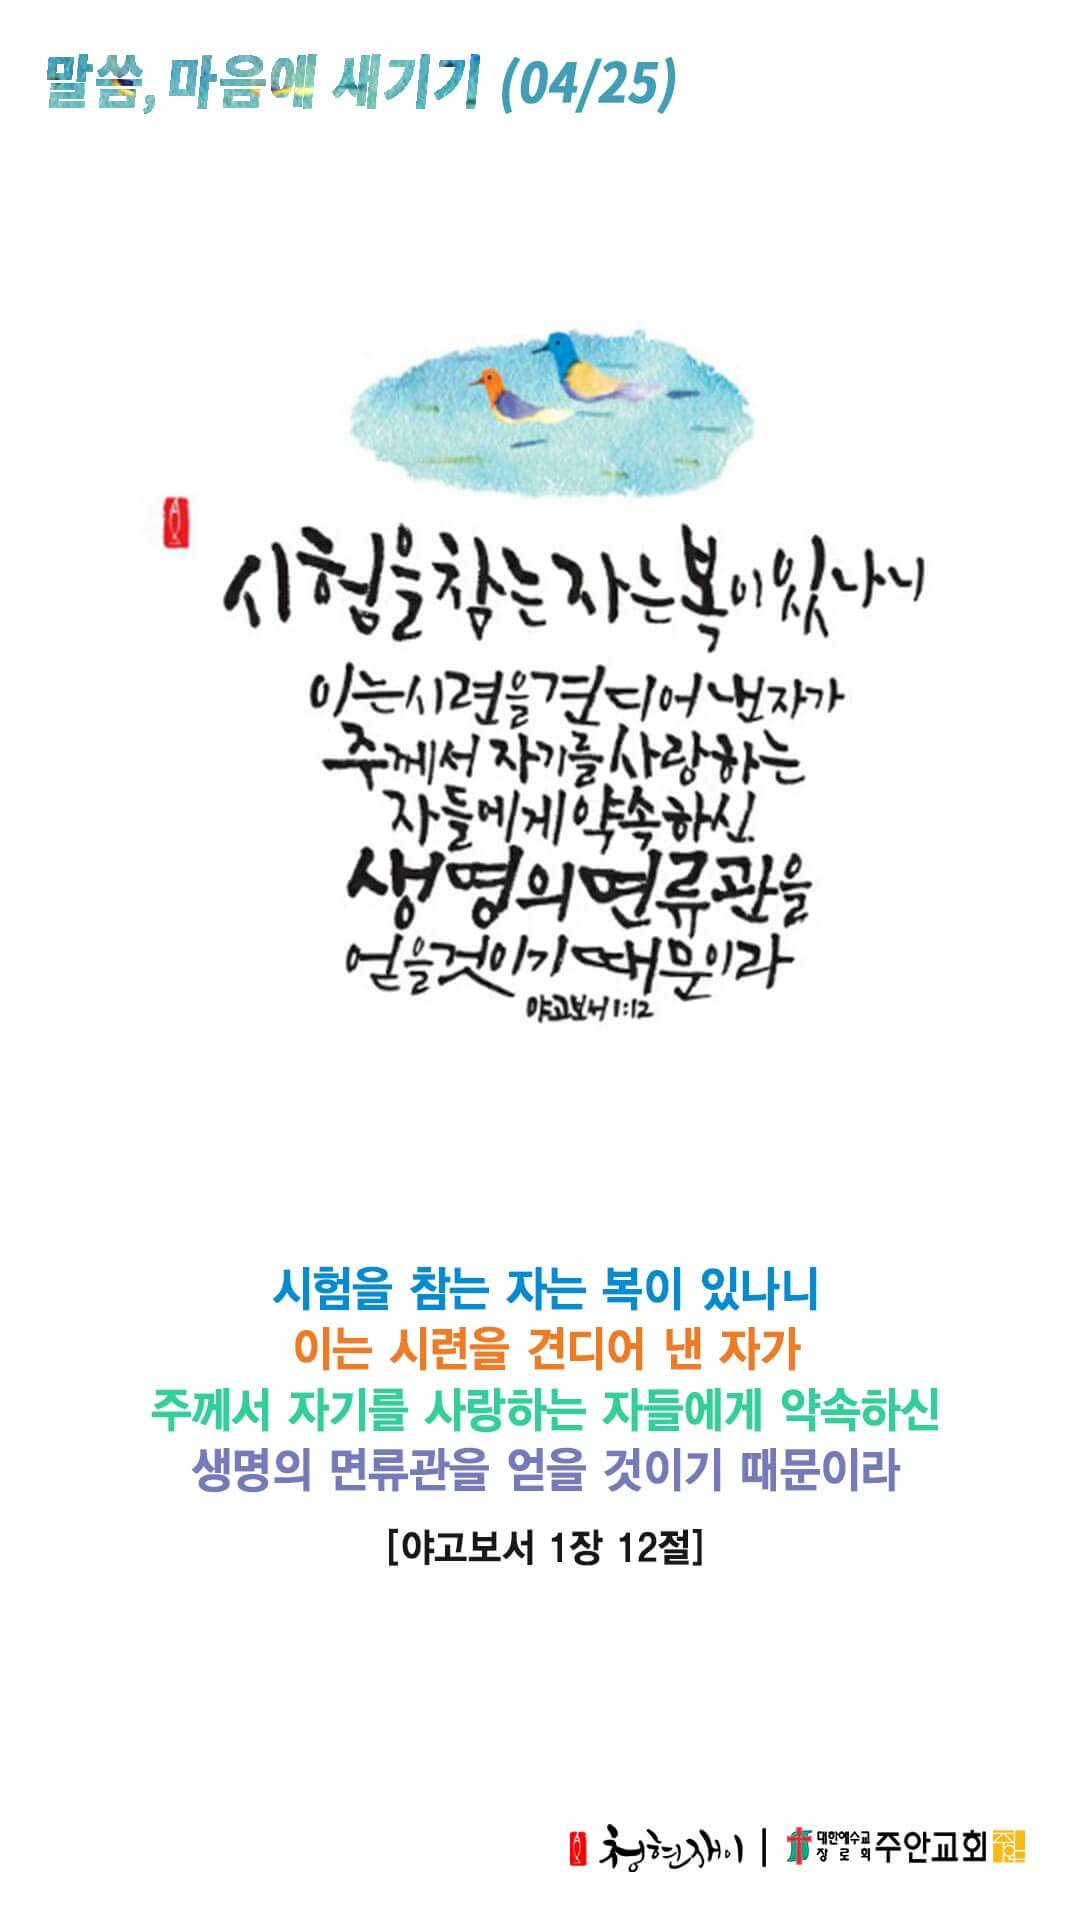 말씀, 마음에 새기기 (04/25)
시험을 참는 자는 복이 있나니
이는 시련을 견디어 낸 자가
주께서 자기를 사랑하는
자들에게 약속하신
생명의 면류관을
얻을 것이기 때문이라
야고보서 1:12
시험을 참는 자는 복이 있나니
이는 시련을 견디어 낸 자가
주께서 자기를 사랑하는 자들에게 약속하신
생명의 면류관을 얻을 것이기 때문이라
[야고보서 1장 12절]
청현재이 | 대한예수교 장로회 주안교회